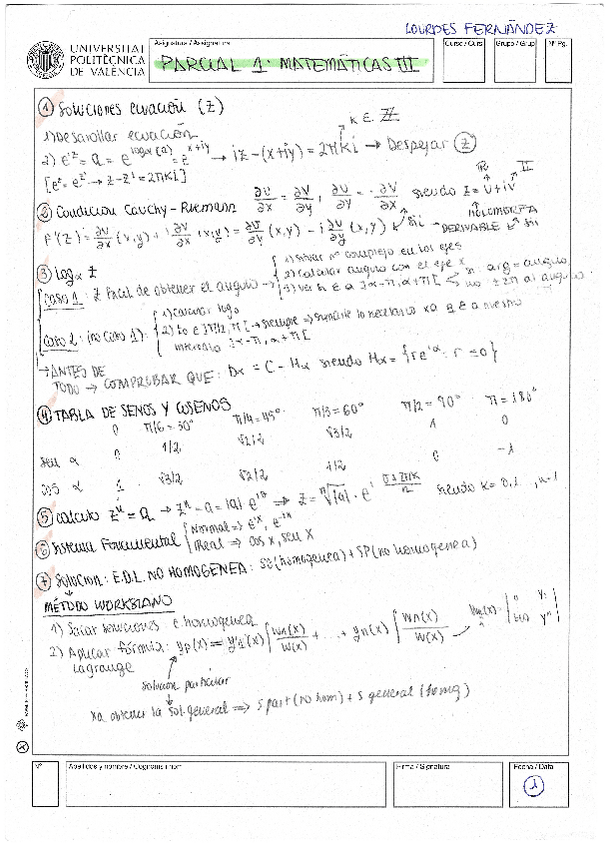 LOURDES FERNÁNDEZ
UNIVERSITAT
POLITÈCNICA
DE VALÈNCIA
Asignatura / Assignatura
PARCIAL 1: MATEMÁTICAS III
Curso / Curs
Grupo / Grup
Nº Pg.
① Soluciones ecuación (Z)
K ∈ ℤ
1) Desarrollar ecuación
2) e^{iz} = a = e^{log(a)} = e^{x+iy} → iz-(x+iy) = 2πki → Despejar Z
[e^z = e^{z'} → z-z' = 2πki]
② Condición Cauchy-Riemann ∂U/∂x = ∂V/∂y, ∂U/∂y = -∂V/∂x siendo Z = U+iV
HOLOMORFA
F'(Z) = ∂U/∂x (x,y) + i ∂V/∂x (x,y) = ∂V/∂y (x,y) - i ∂U/∂y (x,y) DERIVABLE
③ log_α Z
1) situar nº complejo en los ejes
2) calcular ángulo con el eje x
CASO 1: Z fácil de obtener el ángulo → 3) ver si ∈ a ]α-π, α+π[ si: arg = ángulo
no ± 2π al ángulo.
1) calcular log
CASO 2: (no caso 1):
intervalo ]α-π, α+π[
→ ANTES DE
TODO → COMPROBAR QUE: Dα = C - Hα siendo Hα = {re^{iα}: r ≥ 0}
④ TABLA DE SENOS Y COSENOS
0 π/6 = 30° π/4 = 45° π/3 = 60° π/2 = 90° π = 180°
sen α 0 1/2 √2/2 √3/2 1 0
cos α 1 √3/2 √2/2 1/2 0 -1
⑤ Cálculo Z^n = a → Z^n = a = |a| e^{iθ} ⇒ Z = ⁿ√|a| · e^{i (θ+2πk)/n} siendo k = 0,1..,n-1
⑥ Sistema Fundamental { Normal ⇒ e^{ix}, e^{-ix}
Real ⇒ cos x, sen X
⑦ Solución: E.D.L. NO HOMOGENEA: SG (homogenea) + SP (no homogenea)
MÉTODO WORKSIANO
1) Sacar soluciones e. homogenea
2) Aplicar fórmula: yp(x) = y1(x) ∫ W1(x)/W(x) + ... + yn(x) ∫ Wn(x)/W(x)
Lagrange
solución particular
xa obtener la sol. general ⇒ S part (no hom) + S general (homg)
Nº
Apellidos y nombre / Cognoms i nom
Firma / Signatura
Fecha / Data
①